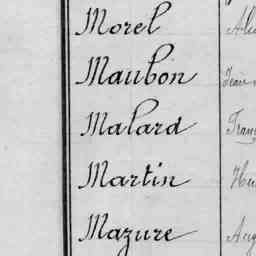 Morel
Maubon
Malard
Martin
Mazure